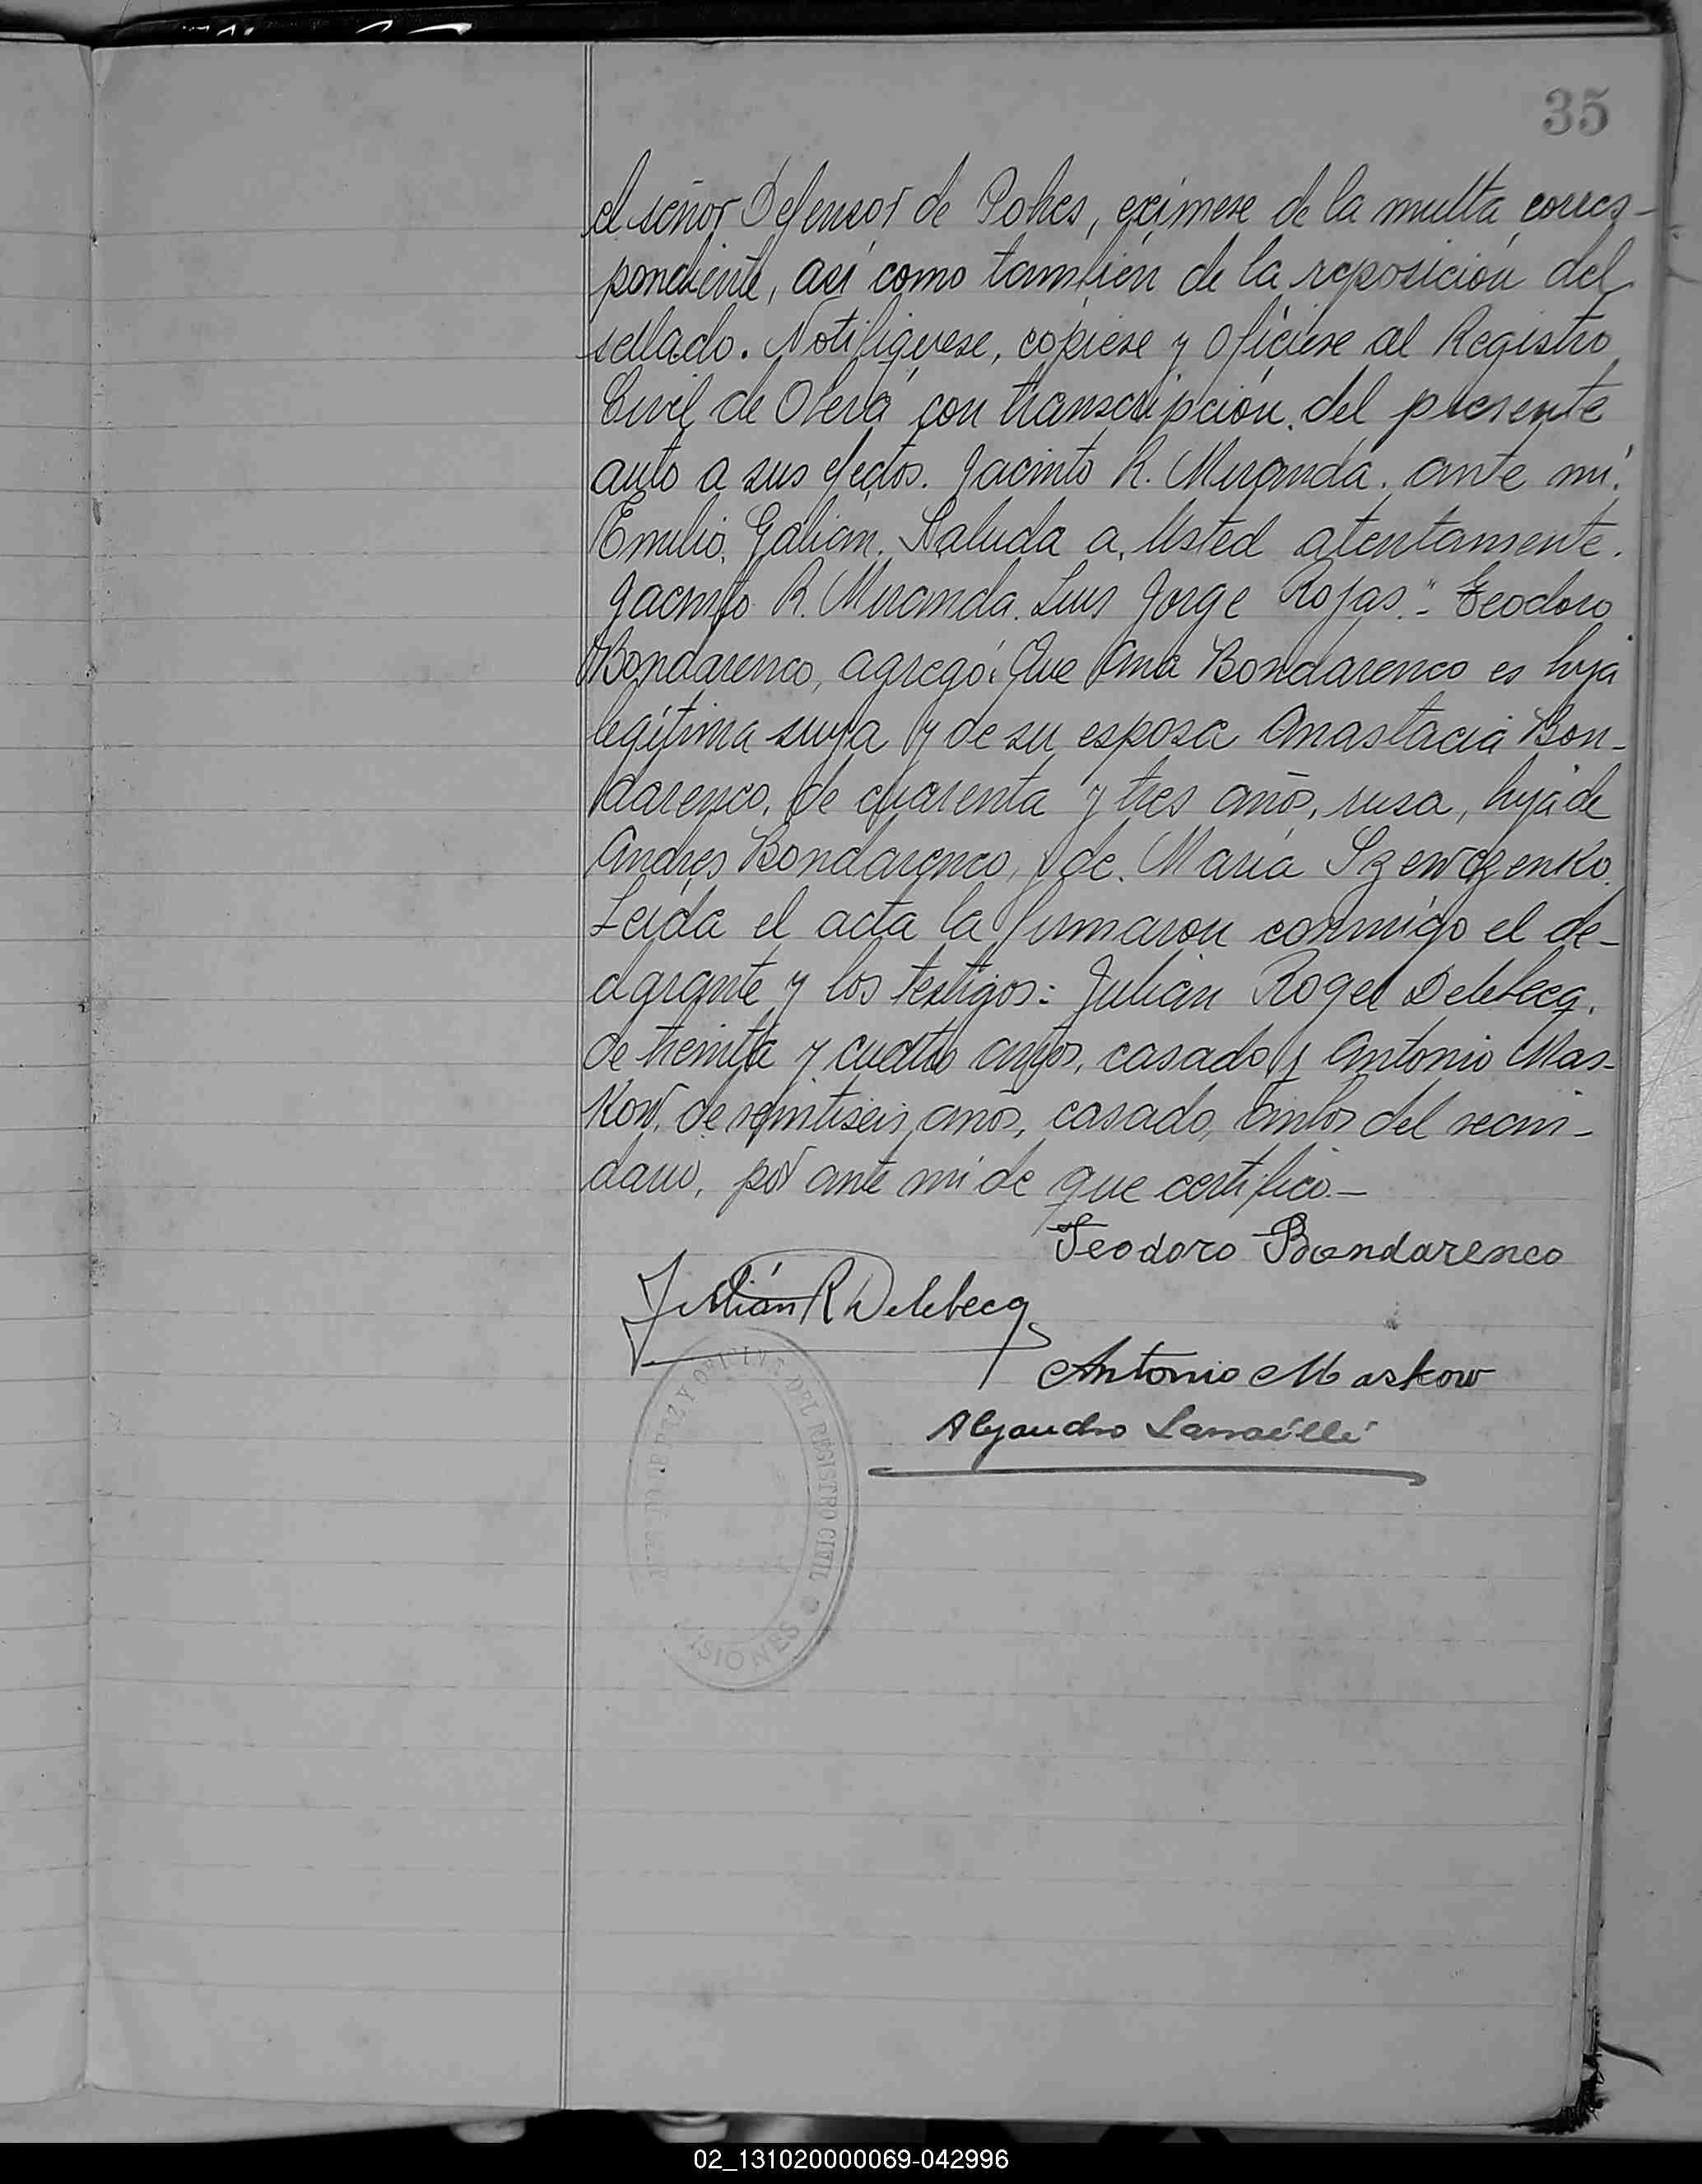 35
el señor Defensor de Pobres, exímese de la multa corres-
pondiente, así como también de la reposición del
sellado. Notifíquese, cópiese y ofíciese al Registro
Civil de Oberá con transcripción del presente
auto a sus efectos. Jacinto R. Miranda. ante mí:
Emilio Galian. Saluda a Usted atentamente.
Jacinto R. Miranda. Luis Jorge Rojas."- Teodoro
Bondarenco, agregó: Que Ana Bondarenco es hija
legítima suya y de su esposa Anastacia Bon-
darenco, de cuarenta y tres años, rusa, hija de
Andrés Bondarenco, y de María Szewczenko.
Leída el acta la firmaron conmigo el de-
clarante y los testigos: Julián Roger Delebecq,
de treinta y cuatro años, casado y Antonio Mas-
kow, de veintiseis años, casado, ambos del vecin-
dario, por ante mi de que certifico.-
Teodoro Bondarenco
Julián R Delebecq
Antonio Maskow
Alejandro
DEL REGISTRO CIVIL
ISIONES
02_131020000069-042996